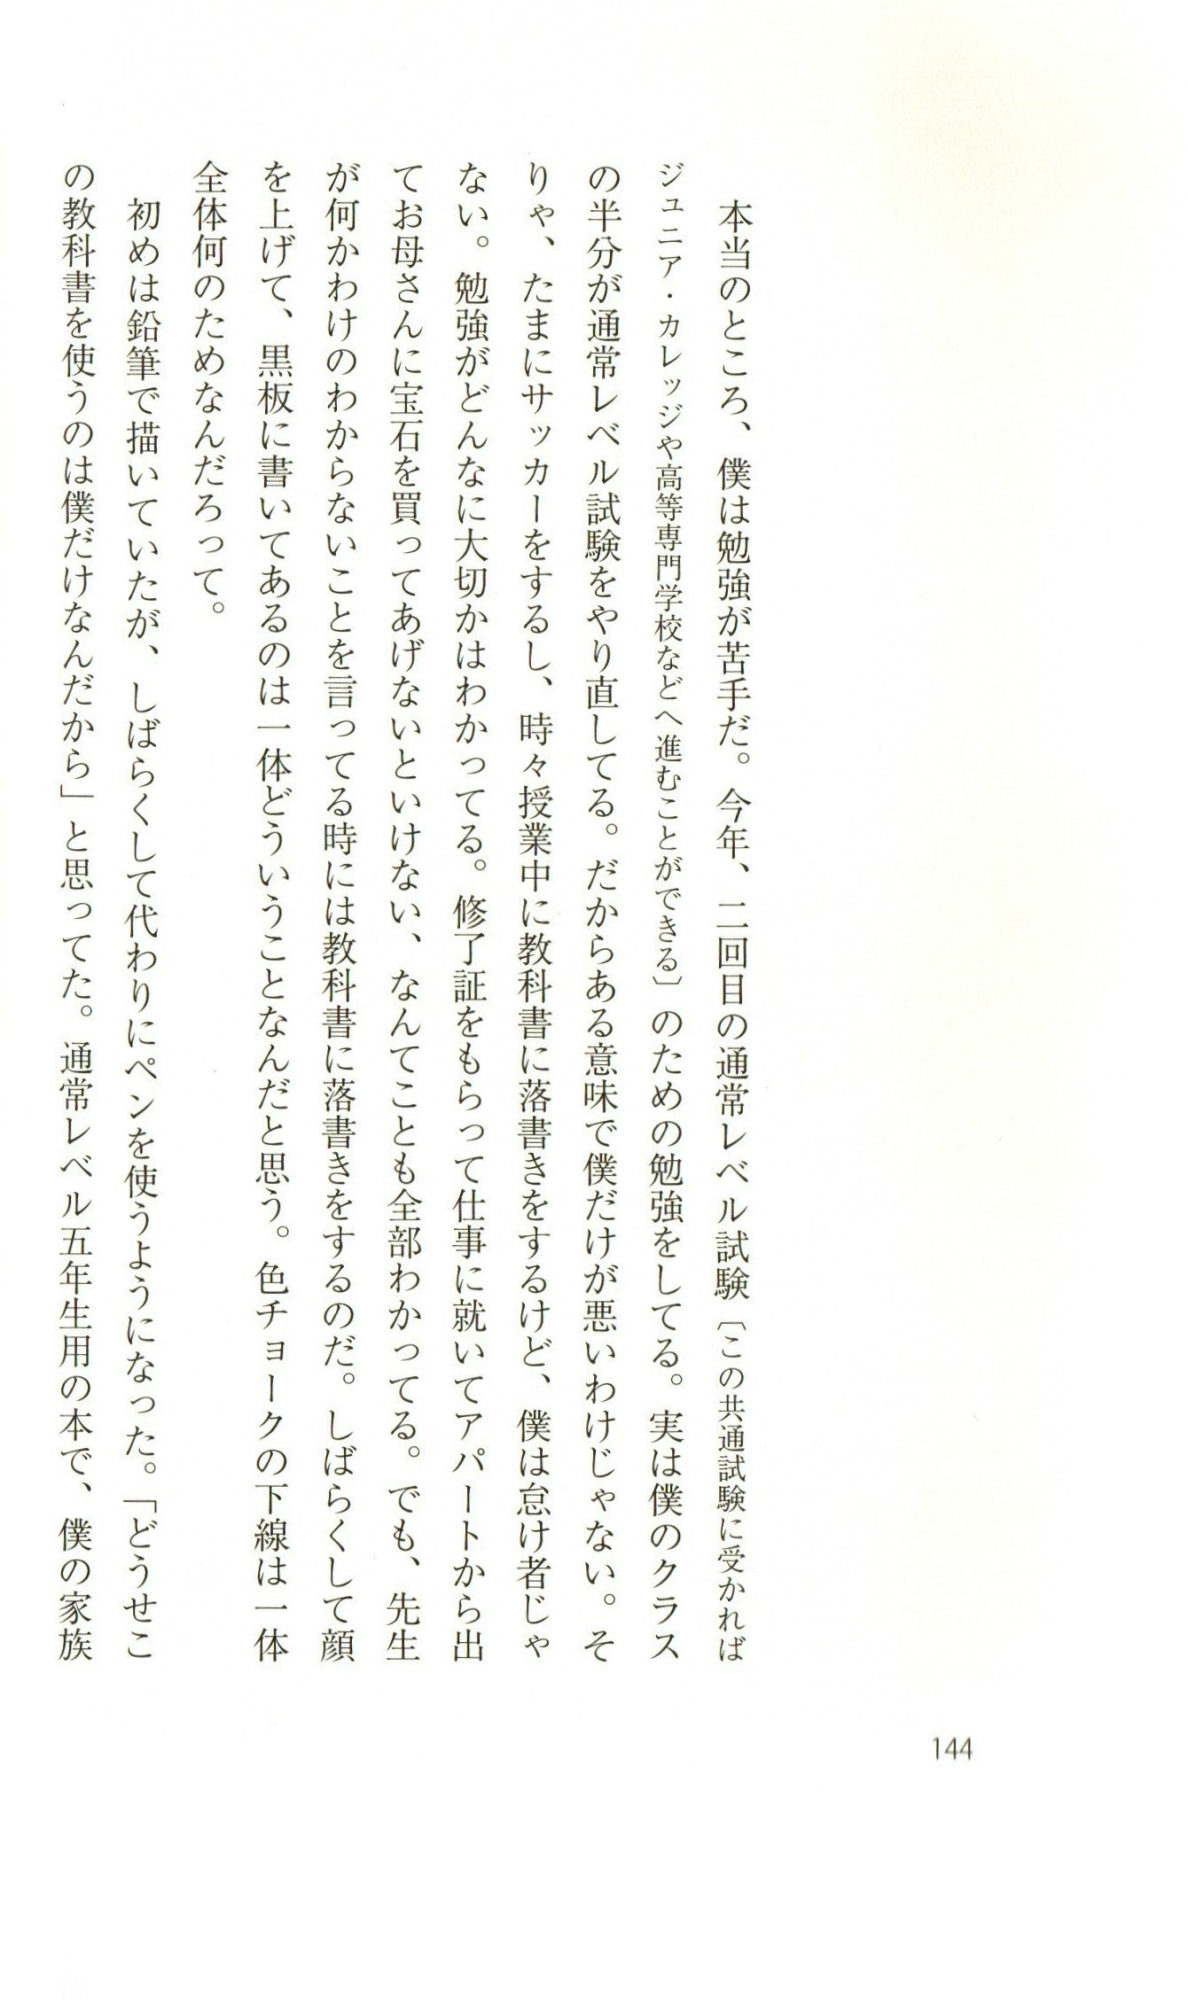 本当のところ、僕は勉強が苦手だ。今年、二回目の通常レベル試験〔この共通試験に受かれば
ジュニア・カレッジや高等専門学校などへ進むことができる〕のための勉強をしてる。実は僕のクラス
の半分が通常レベル試験をやり直してる。だからある意味で僕だけが悪いわけじゃない。そ
りゃ、たまにサッカーをするし、時々授業中に教科書に落書きをするけど、僕は怠け者じゃ
ない。勉強がどんなに大切かはわかってる。修了証をもらって仕事に就いてアパートから出
てお母さんに宝石を買ってあげないといけない、なんてことも全部わかってる。でも、先生
が何かわけのわからないことを言ってる時には教科書に落書きをするのだ。しばらくして顔
を上げて、黒板に書いてあるのは一体どういうことなんだと思う。色チョークの下線は一体
全体何のためなんだろって。
初めは鉛筆で描いていたが、しばらくして代わりにペンを使うようになった。「どうせこ
の教科書を使うのは僕だけなんだから」と思ってた。通常レベル五年生用の本で、僕の家族
144